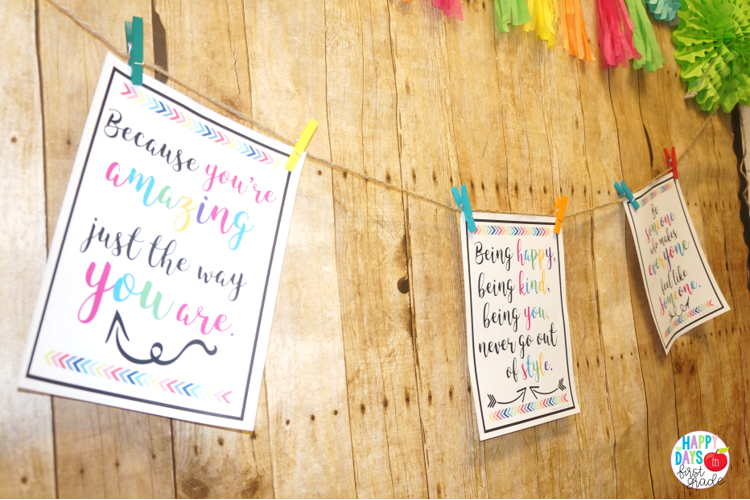 Because you're
amazing
just the way
you are.
Being happy,
being kind,
being you,
never go out
of style.
Be
someone
who makes
everyone
feel like
someone.
HAPPY
DAYS in
first
grade